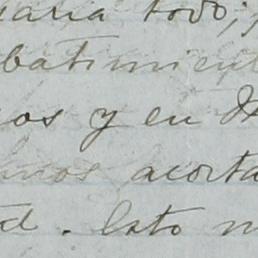 todo;
batimient
os y en
mos acorta
d. Esto